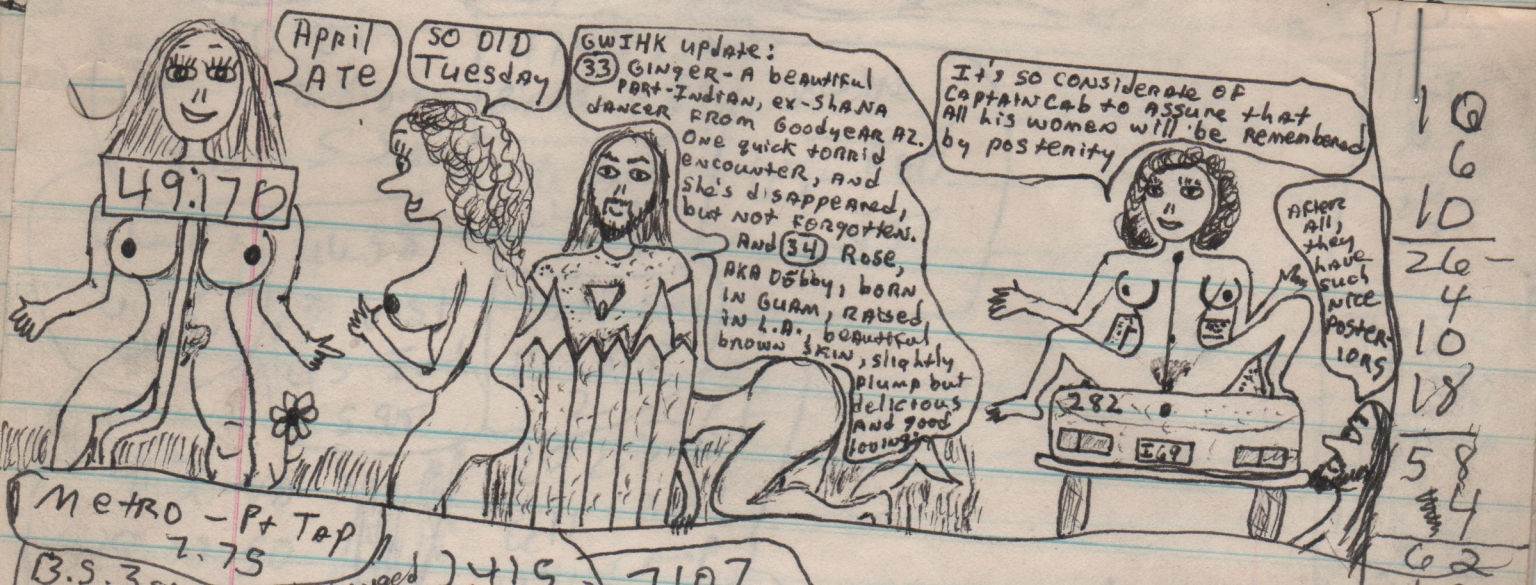 April
ATE
SO DID
Tuesday
GWIHK update:
33 GINGER-A beautiful
PART-INDIAN, ex-ShANA
dANCER FROM Goodyear AZ.
One quick torrid
encounter, AND
she's disappeared,
but not forgotten.
AND 34 Rose,
AKA Debby, born
IN GUAM, RAised
in L.A., beautiful
brown SKIN, slightly
plump but
delicious
AND good
looking
It's so considerate of
CAPTAIN CAb to ASSURE that
All his women will be remembered
by posterity
AFTER
All,
they
have
such
nice
POSTER-
IORS
49.170
282
IG9
10
6
10
26-
4
10
18
58
4
62
Metro - Pt Tap
7.75
B.S.3
7107